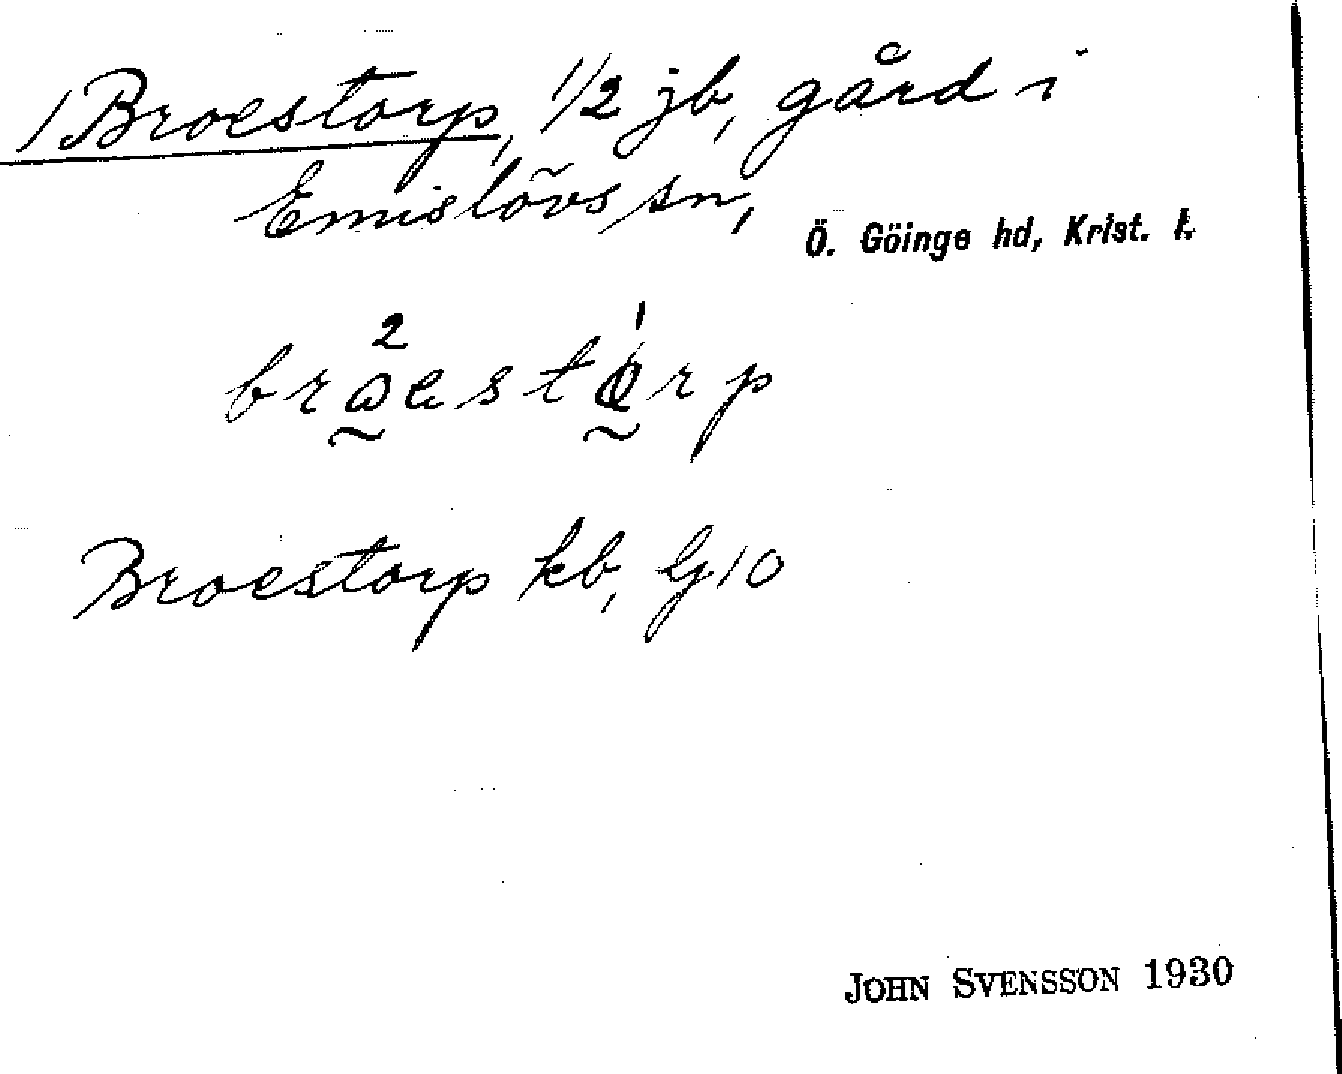 1 Broestorp, 1/2 jb, gård i
Emislövs sn, Ö. Göinge hd, Krist. l.
Broestorp kb, G10
JOHN SVENSSON 1930